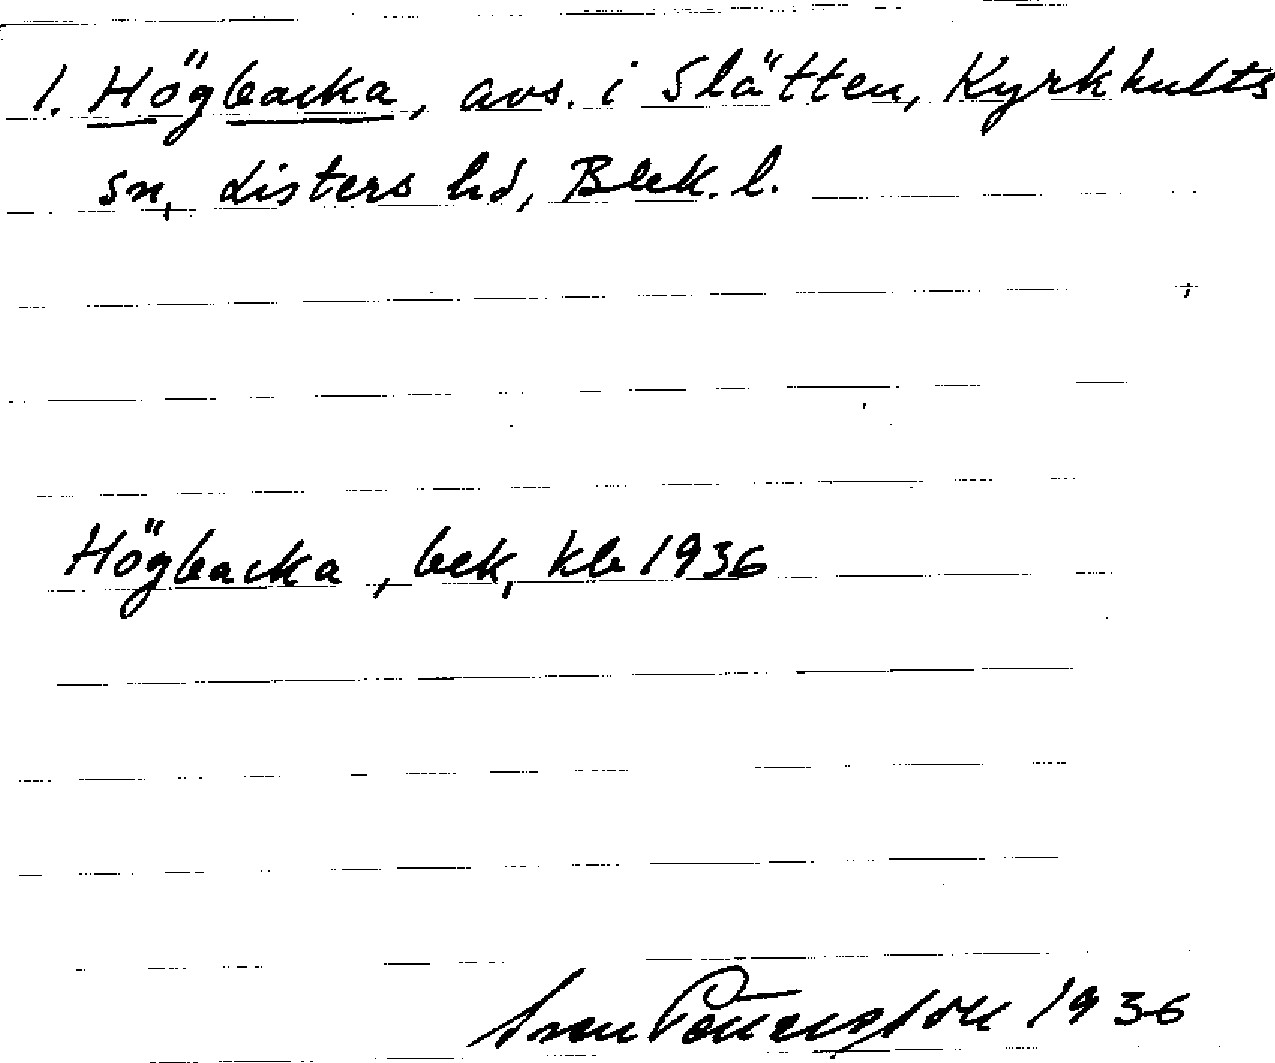 1. Högbacka, avs. i Slätten, Kyrkhults
sn, Listers hd, Blek. l.
Högbacka, bek, kb 1936
Sven 1936